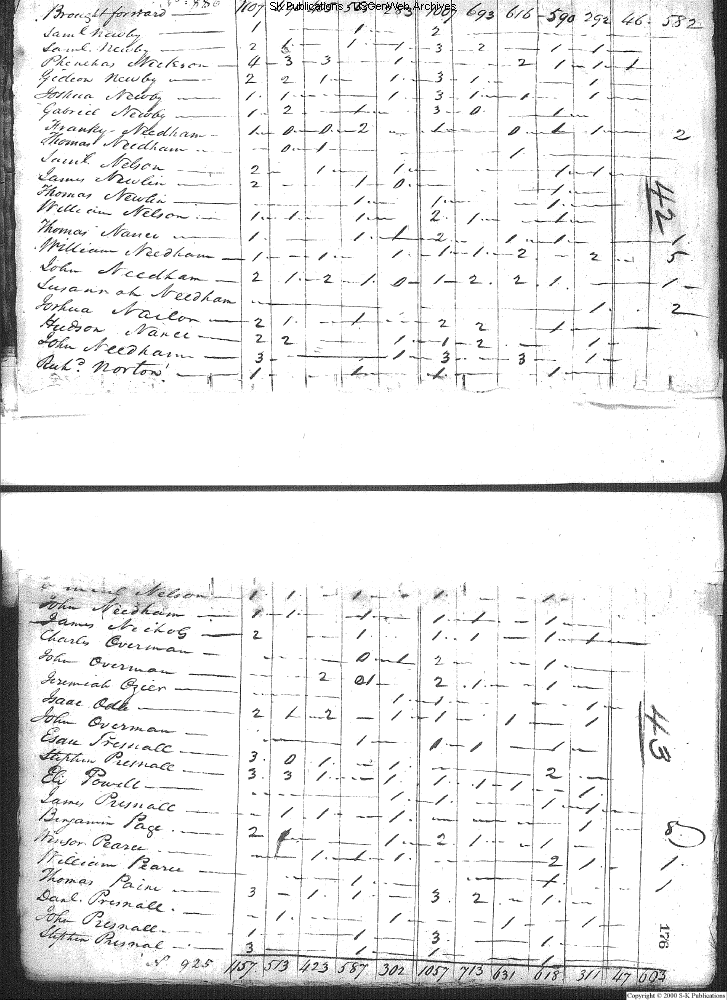 Brought forward 1107 693 616 590 292 46 582
SK Publications - USGenWeb Archives
Saml Newby 1 1 2
Saml. Newby 2 1 3 2 1 1
Phenehas Nickson 4 3 3 1 2 1 1 1
Gideon Newby 2 2 1 3 1 1
Joshua Newby 1 1 1 3 1 1
Gabriel Newby 1 2 1 3 0 1
Franky Needham 1 0 0 2 1 0 1 1 2
Thomas Needham 0 1 1
Saml. Nelson 2 1 1 1 1
James Newlin 2 1 0 1
Thomas Newlin 1 1 1
William Nelson 1 1 1 2 1 1
Thomas Nance 1 1 1 2 1 1
William Needham 1 1 1 1 1 2 2 15
John Needham 2 1 2 1 0 1 2 2 1 1
Susannah Needham 1 2
Joshua Nailor 2 1 1 2 2 1
Hudson Nance 2 2 1 1 2 1
John Needham 3 1 3 3 1
Richd. Norton 1 1 1 1
42
Nelson 1 1 1 1 1
John Needham 1 1 1 1 1 1
James Nichols 2 1 1 1 1 1
Charles Overman 0 1 2 1
John Overman 2 1
Jeremiah Ozier 2 1 1
Isaac Odle 1 1 1
John Overman 2 1 2 1 1 1 1
Esau Presnall 1 0 1 1
Stephen Presnall 3 0 1 1 1 2
Eli Powell 3 3 1 1 1 1 1 1
James Presnall 1 1 1
Benjamin Page 1 1 1 1 1
Winsor Pearce 2 1 2 1 1
William Pearce 1 1 2 1 1
Thomas Paine 1 1 1
Danl. Presnall 3 1 1 3 2 1
John Presnall 1 1 1 1
Stephen Presnal 1 3 1
3 1 1 1
43
176
N. 925 1157 513 423 587 302 1057 713 631 618 311 47 603
Copyright © 2000 S-K Publications